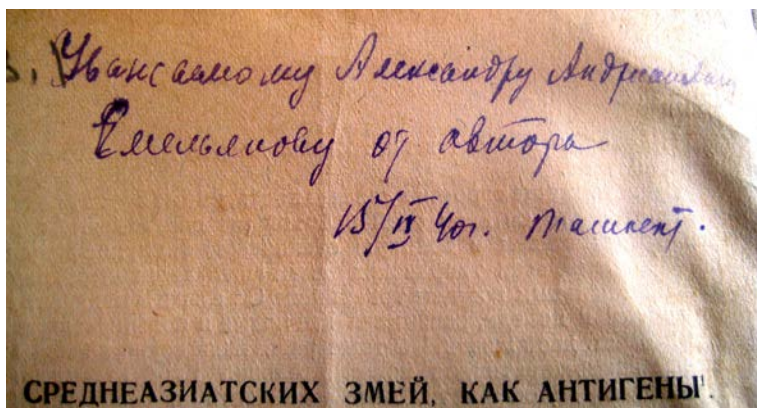 Уважаемому Александру Андриановичу
Емельянову от автора
15/IV 40г. Ташкент.
СРЕДНЕАЗИАТСКИХ ЗМЕЙ, КАК АНТИГЕНЫ¹.